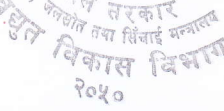 सरकार
जलस्रोत तथा सिंचाई मन्त्रालय
विद्युत विकास विभाग
२०५०